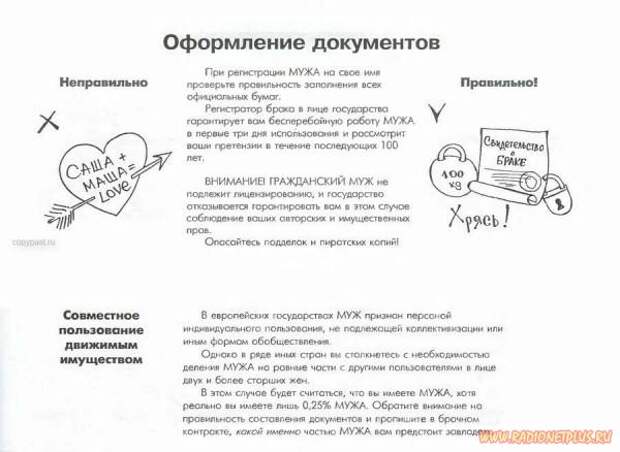 Оформление документов
Неправильно
САША +
МАША =
LOVE
copypast.ru
При регистрации МУЖА на свое имя
проверьте правильность заполнения всех
официальных бумаг.
Регистратор брака в лице государства
гарантирует вам бесперебойную работу МУЖА
в первые три дня использования и рассмотрит
ваши претензии в течение последующих 100
лет.
ВНИМАНИЕ! ГРАЖДАНСКИЙ МУЖ не
подлежит лицензированию, и государство
отказывается гарантировать вам в этом случае
соблюдение ваших авторских и имущественных
прав.
Опасайтесь подделок и пиратских копий!
Правильно!
Свидетельство
о
БРАКЕ
100
кg
Хрясь!
Совместное
пользование
движимым
имуществом
В европейских государствах МУЖ признан персоной
индивидуального пользования, не подлежащей коллективизации или
иным формам обобществления.
Однако в ряде иных стран вы столкнетесь с необходимостью
деления МУЖА на равные части с другими пользователями в лице
двух и более старших жен.
В этом случае будет считаться, что вы имеете МУЖА, хотя
реально вы имеете лишь 0,25% МУЖА. Обратите внимание на
правильность составления документов и пропишите в брачном
контракте, какой именно частью МУЖА вам предстоит завладеть.
WWW.RADIONETPLUS.RU